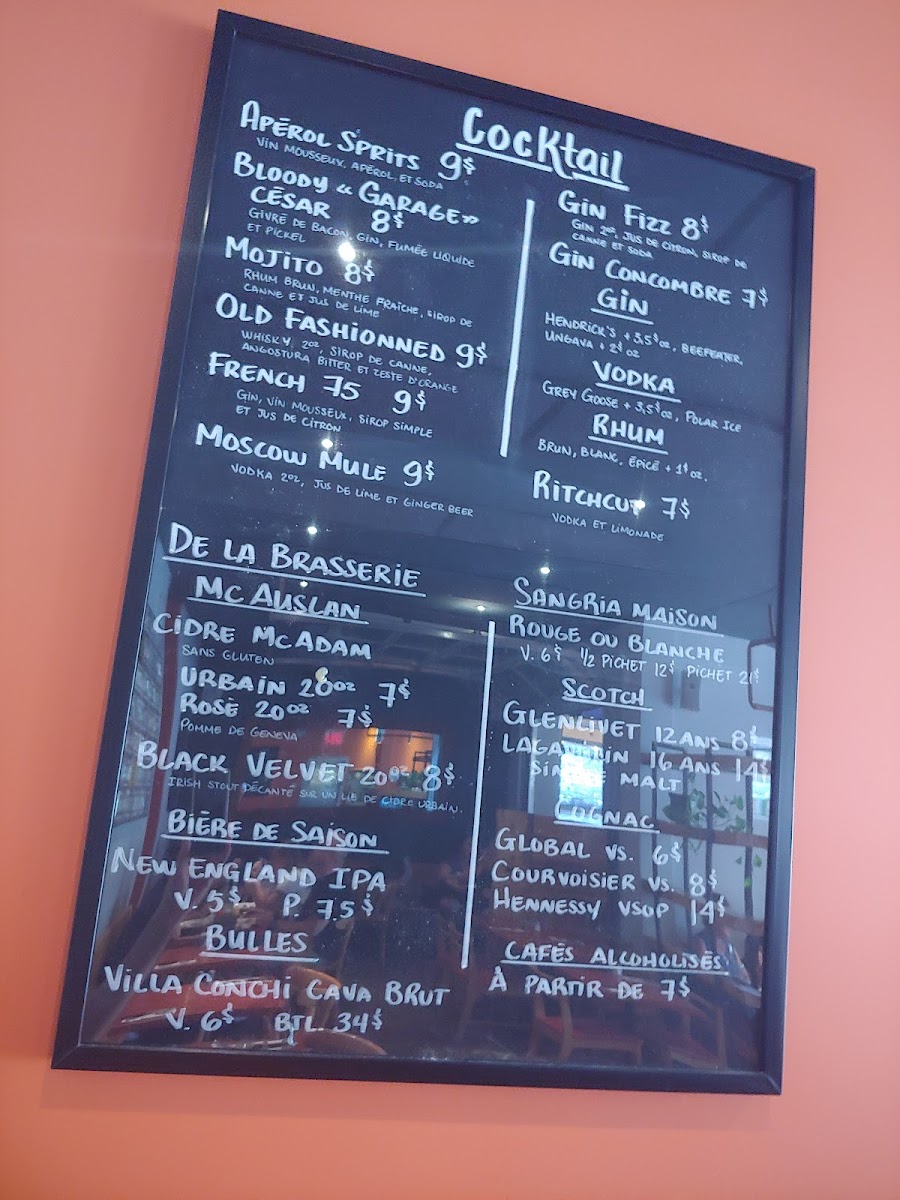 Cocktail
Apérol Sprits 9$
Vin mousseux, Apérol, et soda
Bloody « Garage »
César 8$
Givré de bacon, gin, fumée liquide
et pickel
Mojito 8$
Rhum brun, menthe fraîche, sirop de
canne et jus de lime
Old Fashionned 9$
Whisky 2oz, sirop de canne,
Angostura bitter et zeste d'orange
French 75 9$
Gin, vin mousseux, sirop simple
et jus de citron
Moscow Mule 9$
Vodka 2oz, jus de lime et ginger beer
Gin Fizz 8$
Gin 2oz, jus de citron, sirop de
canne et soda
Gin Concombre 7$
Gin
Hendrick's + 3,5$ oz, Beefeater,
Ungava + 2$ oz
Vodka
Grey Goose + 3,5$ oz, Polar Ice
Rhum
Brun, blanc, épicé + 1$ oz.
Ritchcut 7$
Vodka et limonade
De la Brasserie
McAuslan
Cidre McAdam
Sans gluten
Urbain 20oz 7$
Rosé 20oz 7$
Pomme de Geneva
Black Velvet 20oz 8$
Irish stout décanté sur un lie de cidre urbain.
Bière de saison
New England IPA
V. 5$ P. 7.5$
Bulles
Villa Conchi Cava Brut
V. 6$ BTL. 34$
Sangria maison
Rouge ou blanche
V. 6$ 1/2 pichet 12$ pichet 21$
Scotch
Glenlivet 12 ans 8$
Lagavulin 16 ans 14$
Single malt
Cognac
Global VS. 6$
Courvoisier VS. 8$
Hennessy VSOP 14$
Cafés alcoolisés
À partir de 7$